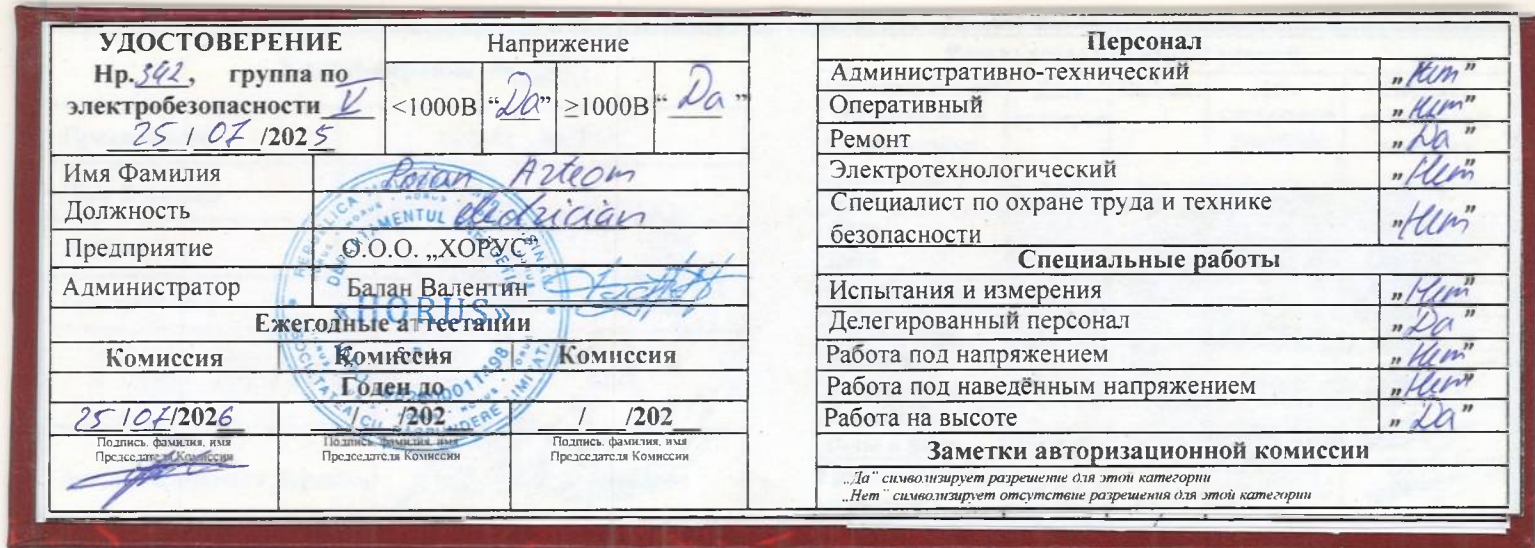 УДОСТОВЕРЕНИЕ
Нр.342, группа по
электробезопасности V
25 / 07 /2025
Наприжение
<1000В “Да” ≥1000В “Да”
Имя Фамилия Arteom
Должность electrician
Предприятие О.О.О. „ХОРУС”
Администратор Балан Валентин
Ежегодные аттестации
Комиссия Комиссия Комиссия
Годен до
25 / 07/2026 / /202 / /202
Подпись, фамилия, имя Подпись, фамилия, имя Подпись, фамилия, имя
Председателя Комиссии Председателя Комиссии Председателя Комиссии
REPUBLICA
DEPARTAMENTUL ENERGETIC
«HORUS»
SOCIETATEA CU RĂSPUNDERE LIMITATĂ
Персонал
Административно-технический „Нет”
Оперативный „Нет”
Ремонт „Да”
Электротехнологический „Нет”
Специалист по охране труда и технике
безопасности „Нет”
Специальные работы
Испытания и измерения „Нет”
Делегированный персонал „Да”
Работа под напряжением „Нет”
Работа под наведённым напряжением „Нет”
Работа на высоте „Да”
Заметки авторизационной комиссии
„Да” символизирует разрешение для этой категории
„Нет” символизирует отсутствие разрешения для этой категории